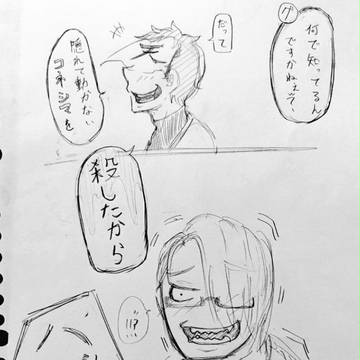 グ
何で知ってるん
ですかねぇ
だって
隠れて動かない
コネシマを
殺したから
!!!?